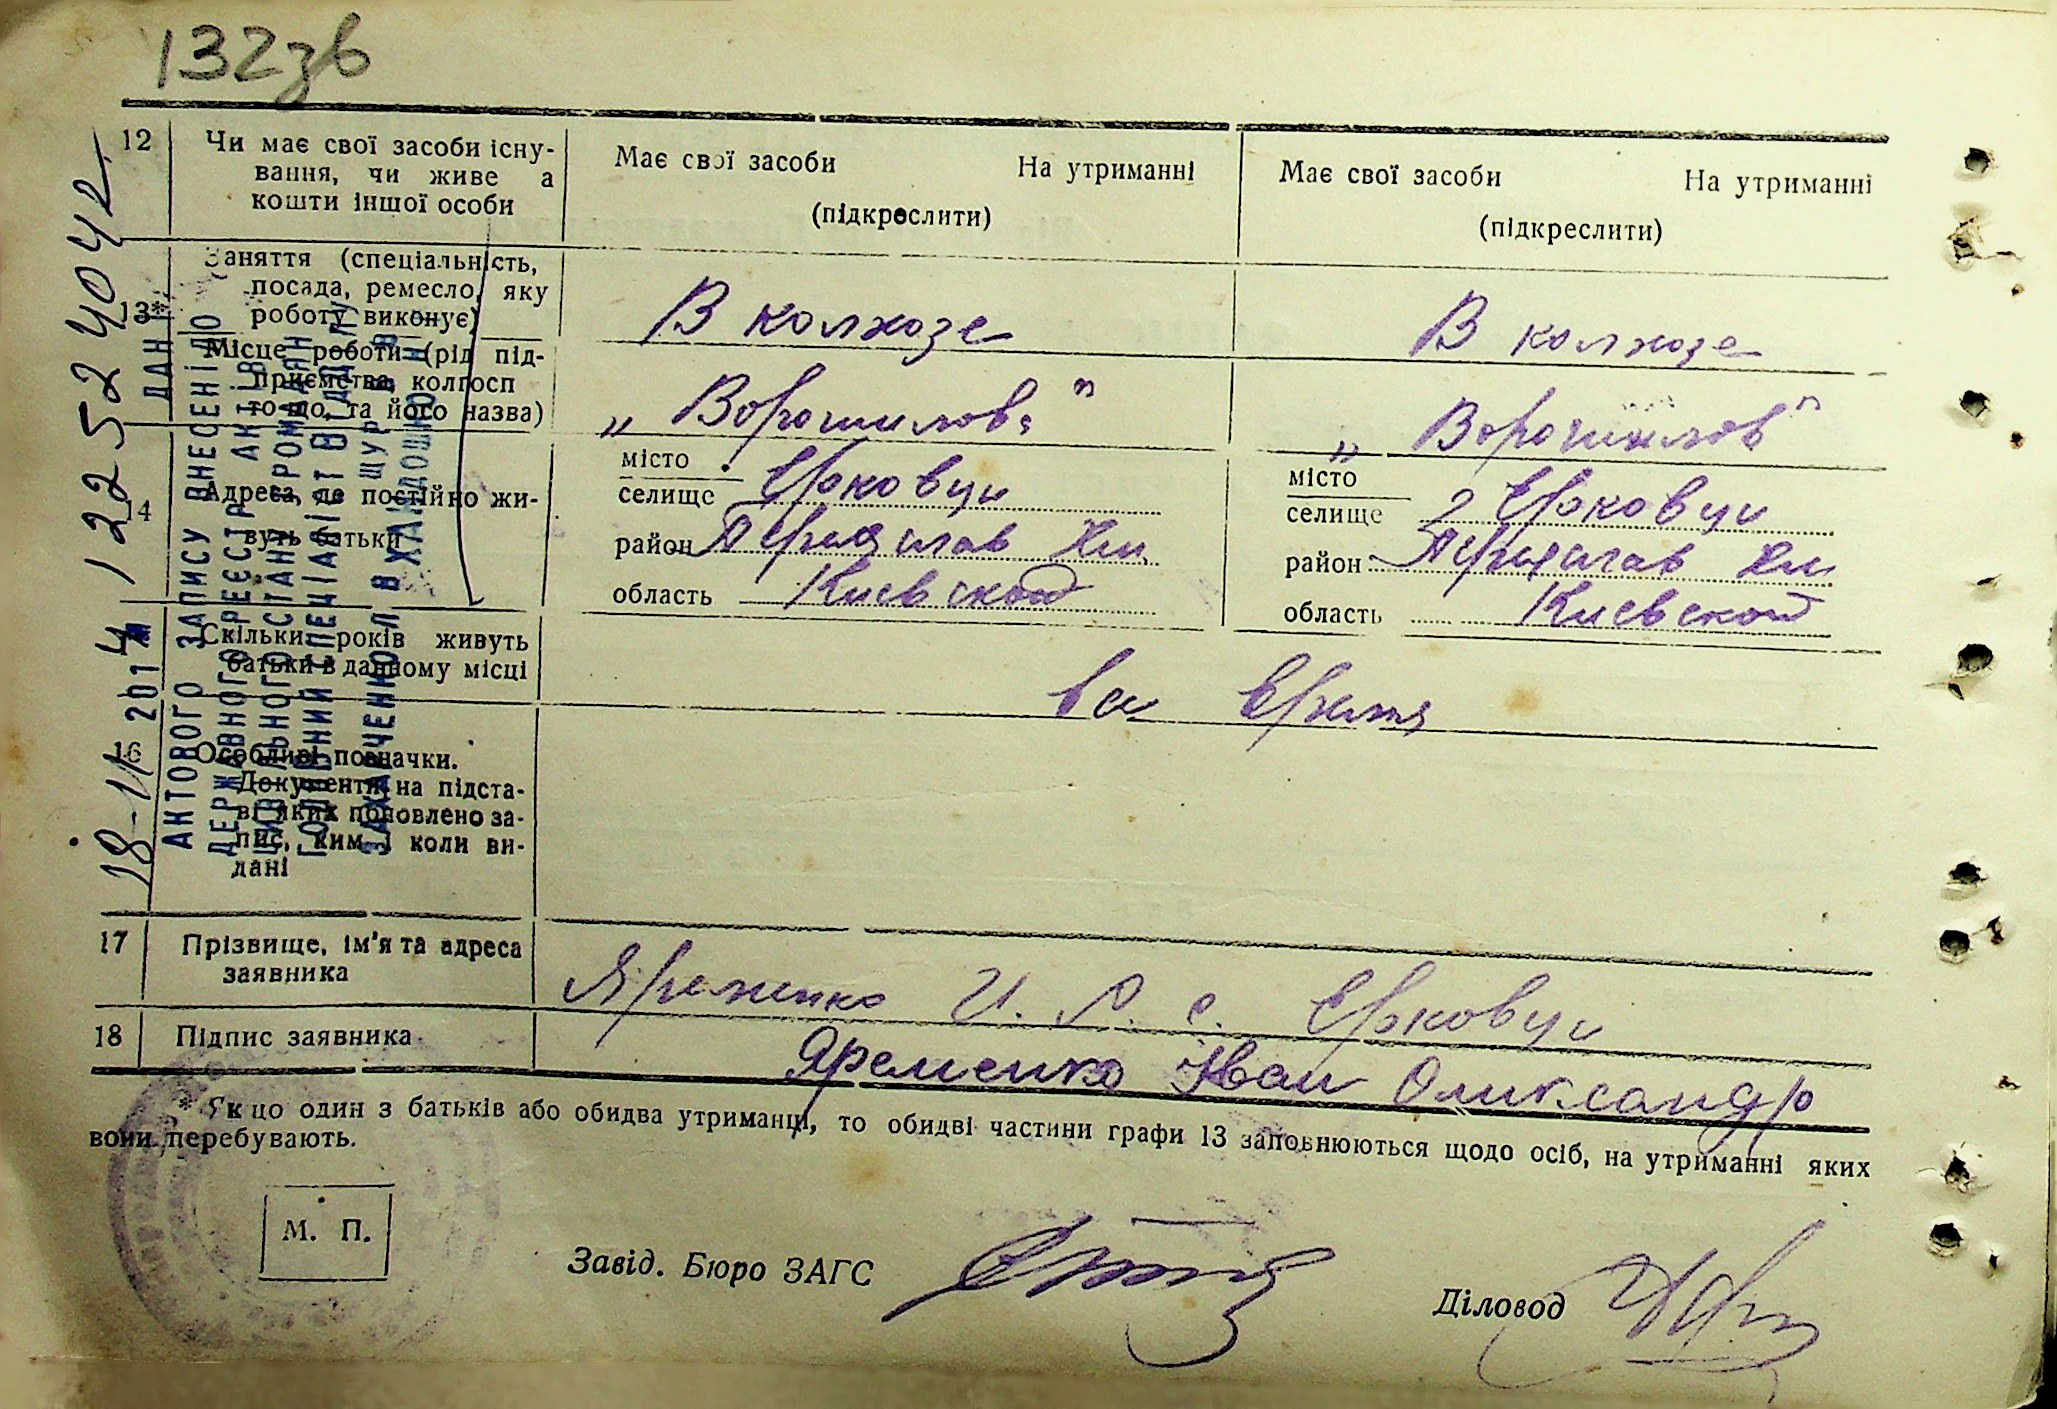 132зв
12
Чи має свої засоби існу-
вання, чи живе а
кошти іншої особи
Має свої засоби На утриманні
(підкреслити)
Має свої засоби На утриманні
(підкреслити)
13*
Заняття (спеціальність,
посада, ремесло, яку
роботу виконує)
В колхозе
В колхозе
Місце роботи (рід під-
приємства, колгосп
то-що, та його назва)
„Ворошилова"
„Ворошилов"
14
Адреса, де постійно жи-
вуть батьки
місто
селище Ерковци
район Переяслав Хм
область Киевской
місто
селище с Ерковци
район Переяслав Хм
область Киевской
Скільки років живуть
батьки в данному місці
все время
16
Особливі позначки.
Документи, на підста-
ві яких поновлено за-
пис, ким і коли ви-
дані
17
Прізвище, ім'я та адреса
заявника
Яременко И. А. с. Ерковци
18
Підпис заявника
Яременко Іван Оликсандр
* Якщо один з батьків або обидва утриманці, то обидві частини графи 13 заповнюються щодо осіб, на утриманні яких
вони перебувають.
М. П.
Завід. Бюро ЗАГС
Діловод
ДАНІ
АКТОВОГО ЗАПИСУ ВНЕСЕНІ ДО
ДЕРЖАВНОГО РЕЄСТРУ АКТІВ
ЦИВІЛЬНОГО СТАНУ ГРОМАДЯН
ГОЛОВНИЙ СПЕЦІАЛІСТ ВІДДІЛУ
18-11 201
12252404